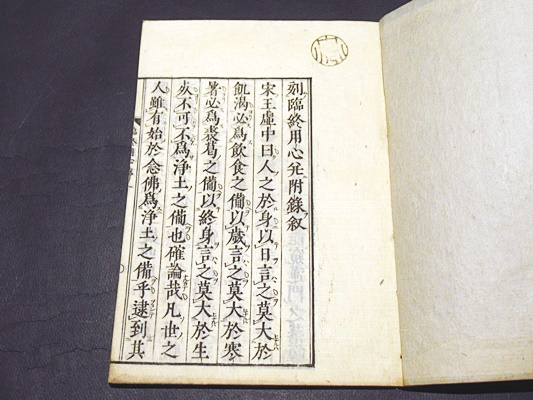 刻臨終用心并附錄叙
宋王虛中曰人之於身以日言之莫大於
飢渴必爲飲食之備以歲言之莫大於寒
暑必爲裘葛之備以終身言之莫大於生
死不可不爲淨土之備也確論哉凡世之
人雖有始於念佛爲淨土之備乎逮到其